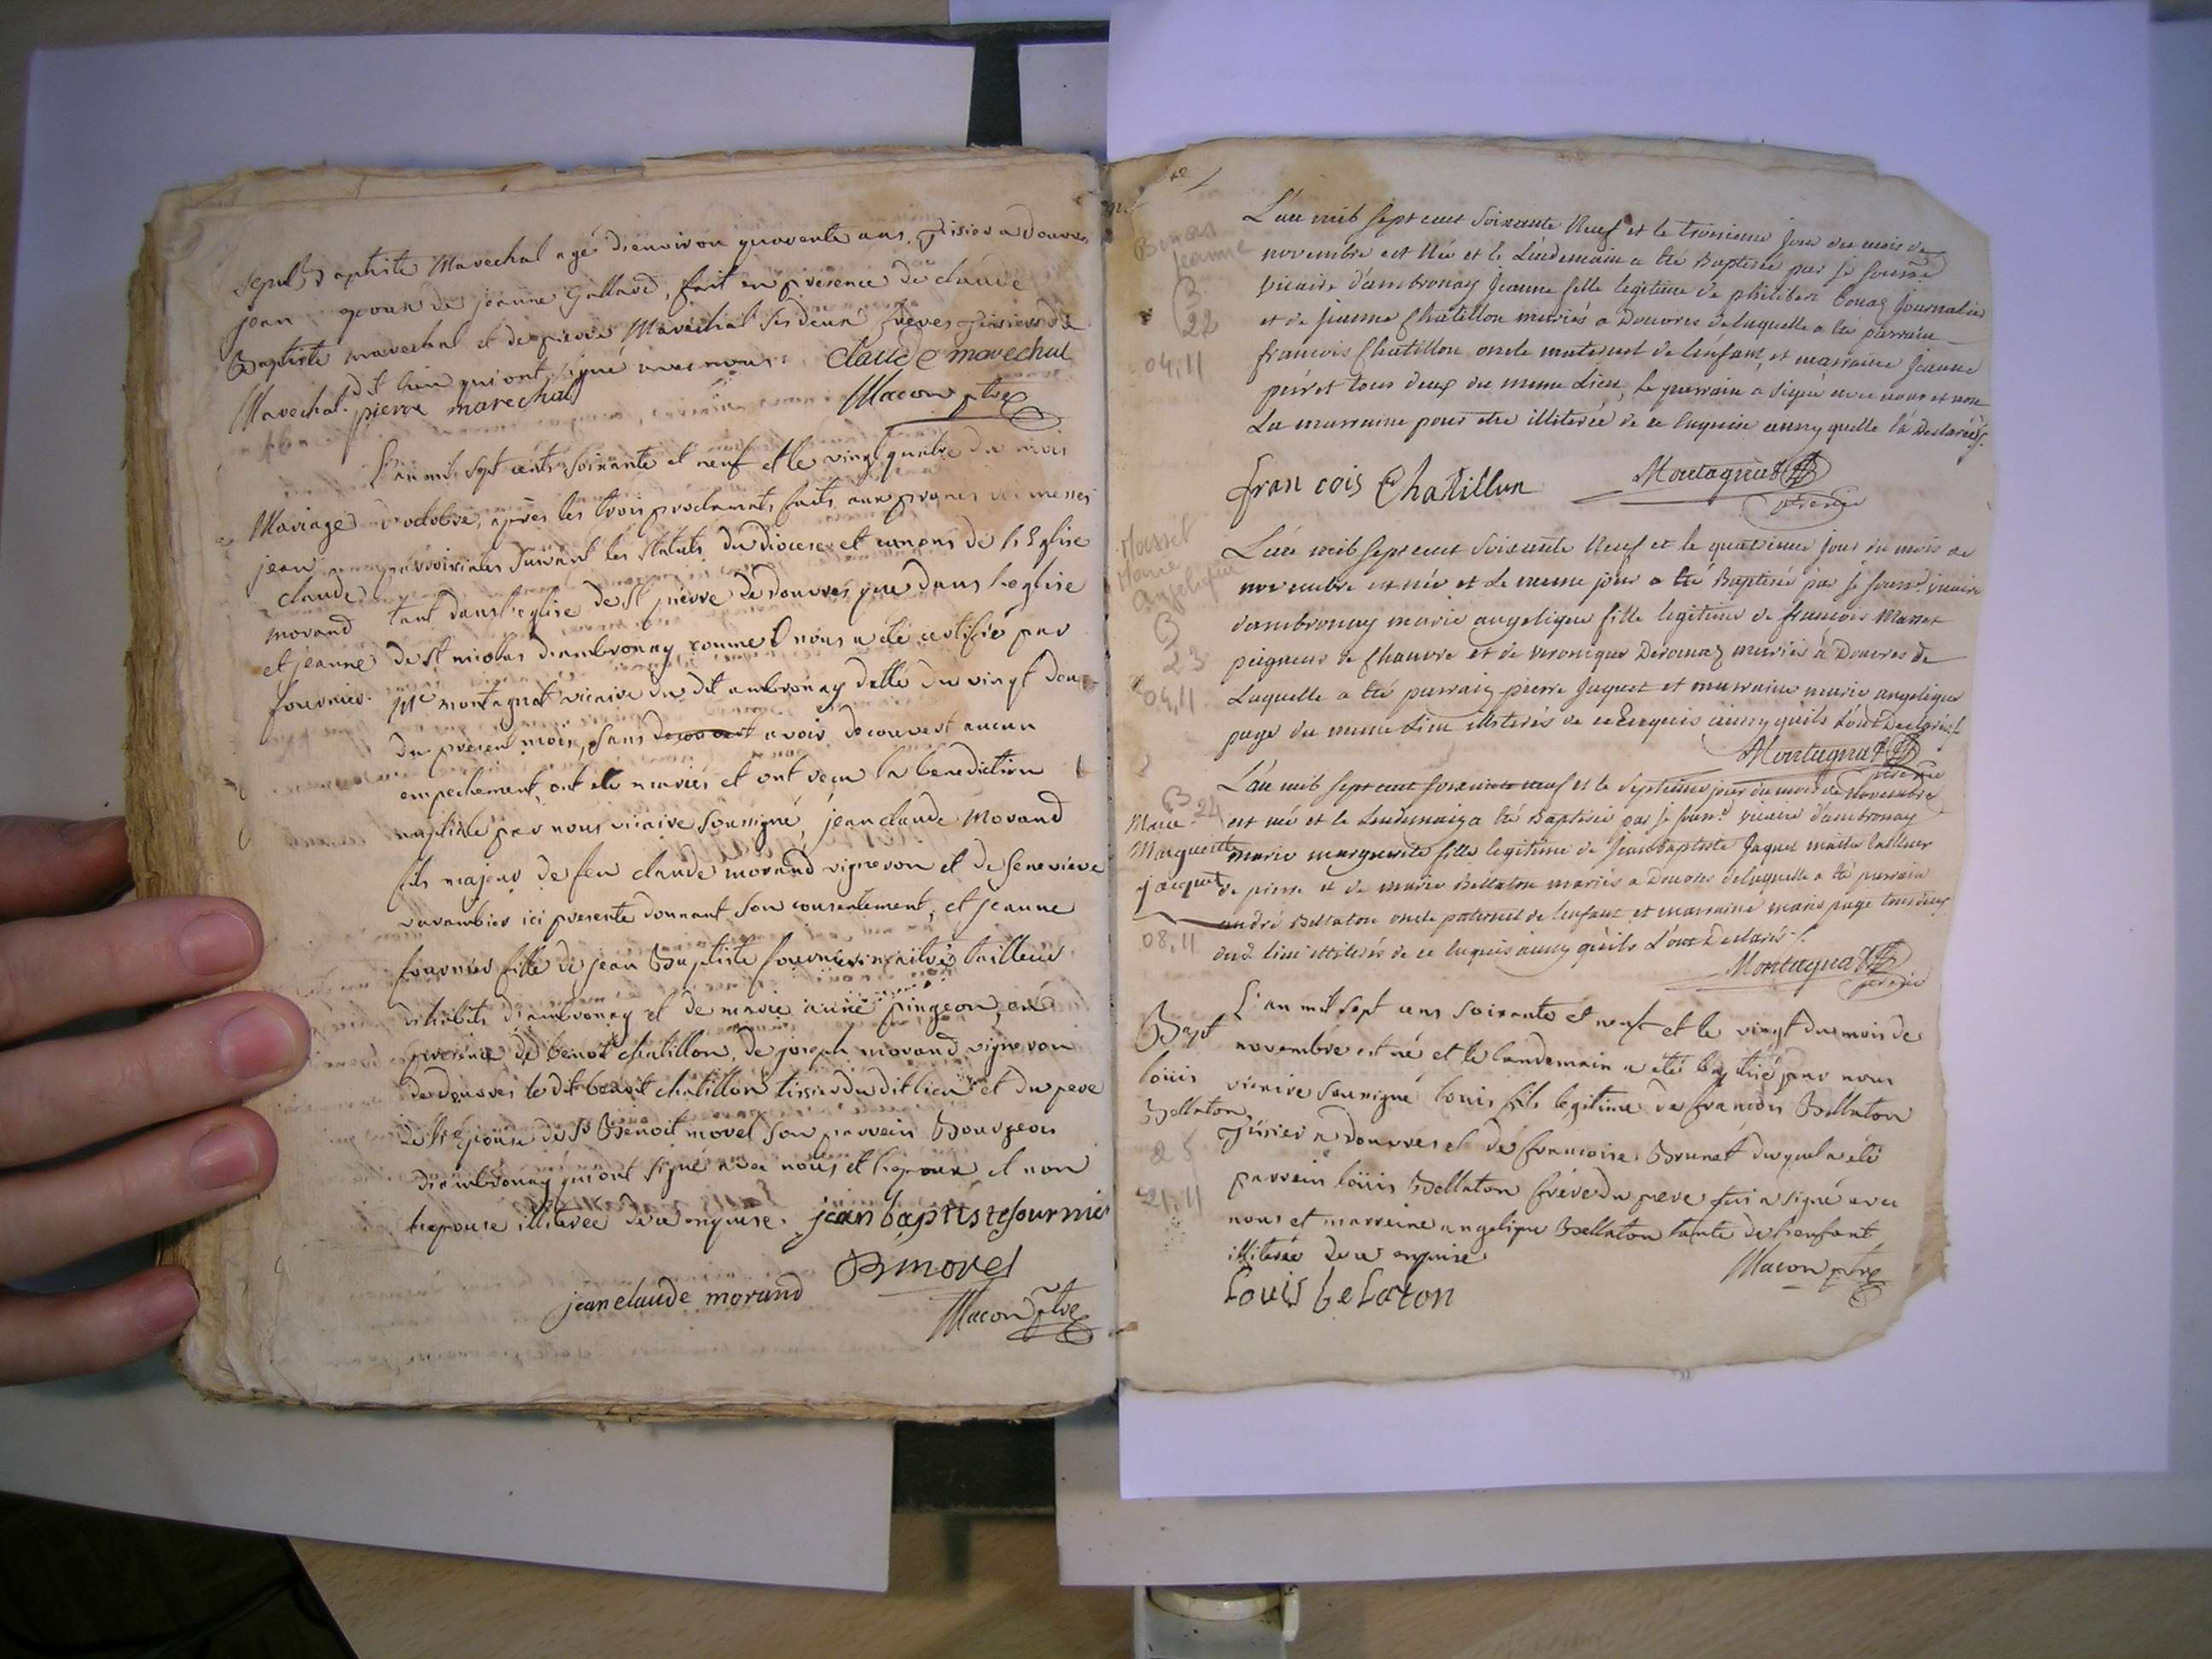 Sepult Baptiste Marechal agé d'environ quarente ans, tisier a douvres
jean epoux de jeanne Gallard, fait en presence de claude
Baptiste marechal et de pierre Marechal ses deux freres tisiers du
Marechal. dt lieu qui ont signé avec nous. claude marechal
pierre marechal Macon ptre
L'an mil sept cents soixante et neuf et le vingt quatre du mois
Mariage d'octobre, après les trois proclamats faits aux prones des messes
jean parroissiales suivant les statuts du diocese et canons de l'Eglise
claude
morand tant dans l'eglise de St pierre de douvres que dans l'eglise
et jeanne de St nicolas d'ambronay comme il nous a été certifié par
fournier. Mre montagnat vicaire du dit ambronay datté du vingt deux
du present mois, sans avoir decouvert aucun
empechement, ont été mariés et ont reçu la benediction
nuptiale par nous vicaire soussigné, jean claude Morand
fils majeur de feu claude morand vigneron et de Genevieve
varambier ici presente donnant son consentement, et jeanne
fournier fille de jean Baptiste fournier maitre tailleur
d'habits d'ambronay et de marie aimé pingeon, en
presence de benoit chatillon, de joseph morand vigneron
de douvres le dit benoit chatillon tissier du dit lieu et du pere
de l'epouse de Sr Benoit morel son parrein Bourgeois
d'ambronay qui ont signé avec nous et l'epoux et non
l'epouse illiterée de ce enquise. jean baptiste fournier
B morel
jean claude morand
Macon ptre
L'an mil sept cent soixante Neuf et le troisieme jour du mois de
Bonaz
Jeanne novembre est Née et le Lendemain a été Baptisée par le sousné
B vicaire d'ambronay Jeanne fille legitime de philibert bonaz journalier
22 et de jeanne Chatillon mariés a Douvres de laquelle a été parrain
04,11 francois Chatillon oncle maternel de l'enfant, et marraine jeanne
perret tous deux du meme Lieu, le parrain a signé avec nous et non
La marraine pour etre illiterée de ce Enquise ainsy quelle l'a Declarée
fran cois Chatillon Montagnat
vicaire
Masset
Marie
Angelique
L'an mil sept cent soixante Neuf et le quatrieme jour du mois de
novembre est née et Le meme jour a été Baptisée par le sousd. vicaire
B d'ambronay marie angelique fille legitime de francois Masset
23 peigneur de Chanvre et de veronique Deromaz mariés à Douvres de
04,11 Laquelle a été parrain pierre jaquet et marraine marie angelique
page du meme Lieu illiterés de ce Enquis ainsy qu'ils L'ont Declaré
Montagnat
vicaire
L'an mil sept cent soixante neuf et le septieme jour du mois de novembre
B 24
Marie est née et le Lendemain a été Baptisée par le sousd vicaire d'ambronay
Marguerite marie marguerite fille legitime de jean baptiste jaquet maitre tailleur
jacquet de pierre et de marie Bellaton mariés a Douvres de laquelle a été parrain
andré Bellaton oncle paternel de l'enfant et marraine marie page tous deux
08,11 dud. lieu illiterés de ce Enquis ainsy qu'ils L'ont Declaré
Montagnat
vicaire
L'an mil sept cens soixante et neuf et le vingt du mois de
Bapt novembre est né et le landemain a été baptisé par nous
loüis vicaire soussigné louis fils legitime de francois Bellaton
Bellaton. tissier a douvres et de francoise Brunet duquel a été
25 parrein loüis Bellaton frere du pere qui a signé avec
21,11 nous et marreine angelique Bellaton tante de l'enfant
illiterée de ce enquise Macon ptre
Louis belaton